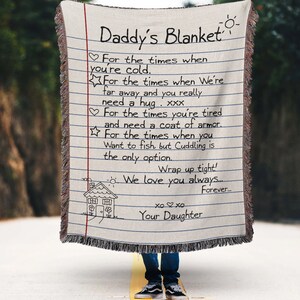 Daddy's Blanket
For the times when
you're cold.
For the times when We're
far away and you really
need a hug. xxx
For the times you're tired
and need a coat of armor.
For the times when you
Want to fish but Cuddling is
the only option.
Wrap up tight!
We love you always...
Forever...
xo ♡ xo
Your Daughter